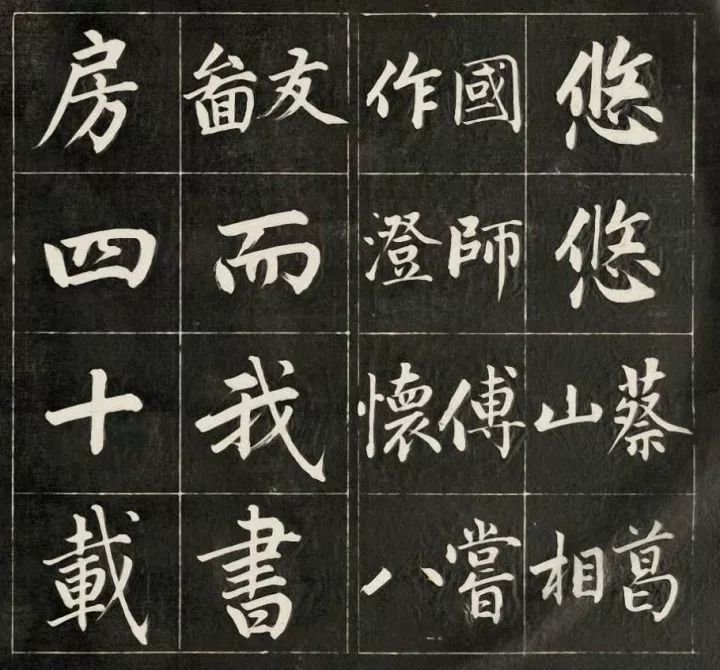 悠悠蔡葛山相
國師傅嘗作澄懷八
友啚而我書
房四十載